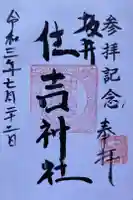 参拝記念
奉拝
坂井
住吉神社
令和三年七月二十二日